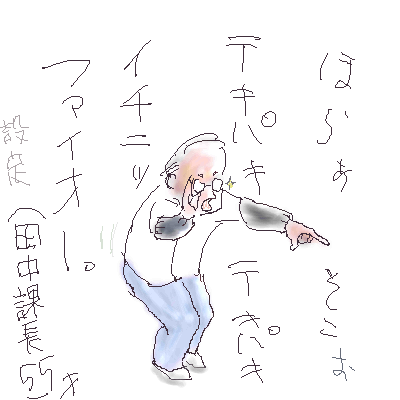 ほらぁ そこぉ
テキパキ テキパキ
イチニッ
ファイオー。
設定 (田中課長55才